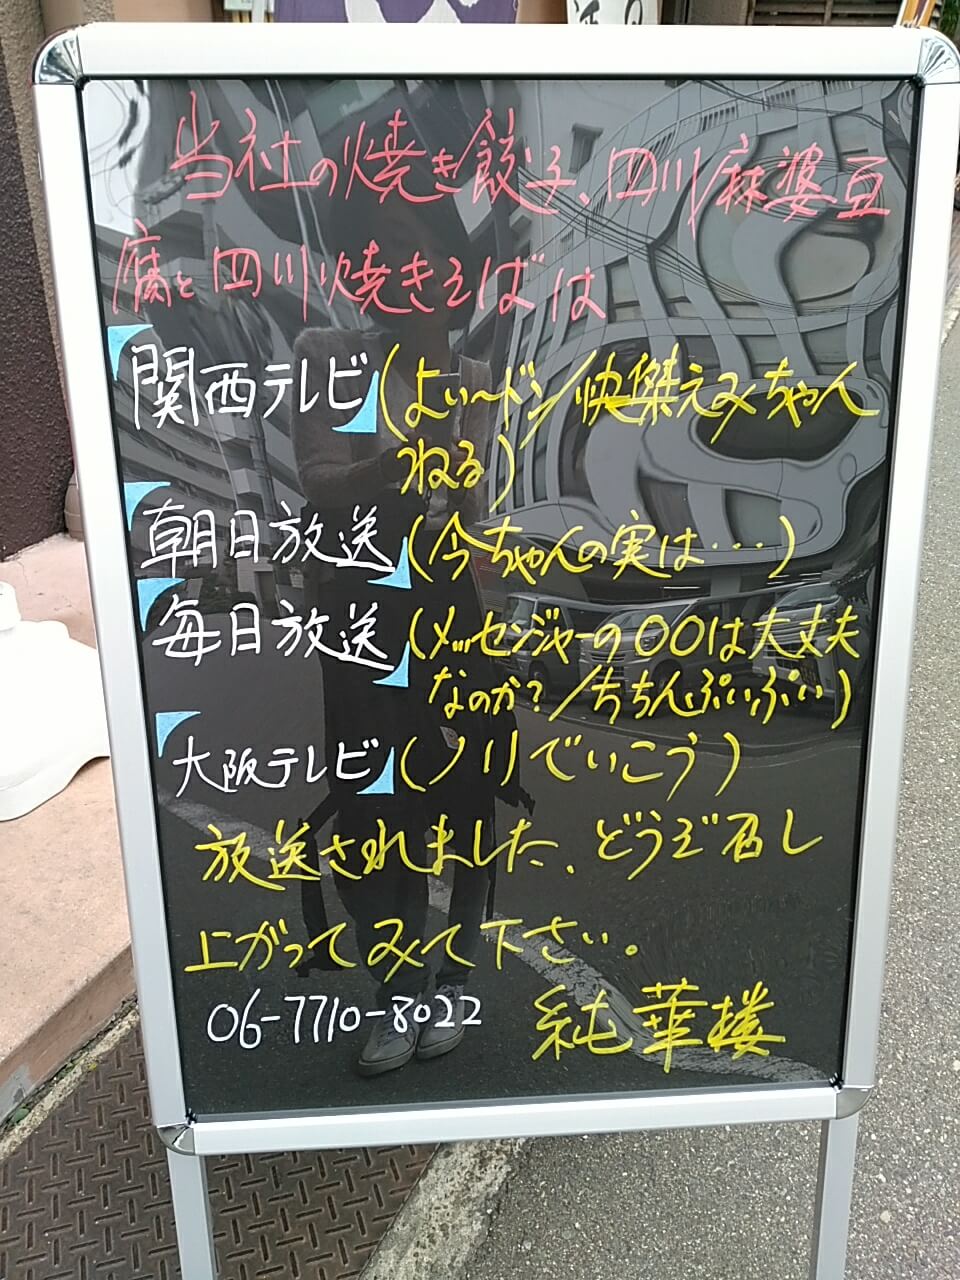 当社の焼き餃子、四川麻婆豆
腐と四川焼きそばは
関西テレビ(よ〜いドン/快傑えみちゃん
ねる)
朝日放送(今ちゃんの実は…)
毎日放送(メッセンジャーの〇〇は大丈夫
なのか?/ちちんぷいぷい)
大阪テレビ(ノリでいこう)
放送されました、どうぞ召し
上がってみて下さい。
06-7710-8022 純華楼